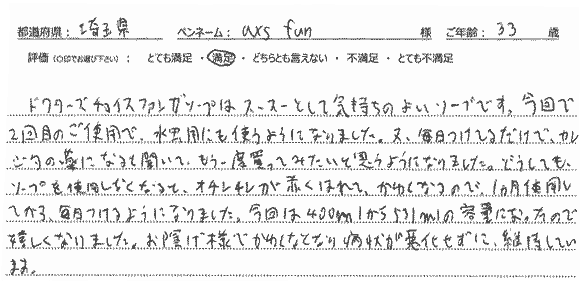 都道府県： 埼玉県 ペンネーム： axs fun 様 ご年齢： 33 歳
評価（○印でお選び下さい）： とても満足 ・ 満足 ・ どちらとも言えない ・ 不満足 ・ とても不満足
ドクターズチョイスファンガソープはスースーとして気持ちのよいソープです。今回で
2回目のご使用で、水虫用にも使うようになりました。又、毎日つけてるだけで、カン
ジタの薬になると聞いて、もう一度買ってみたいと思うようになりました。どうしても、
ソープを使用しなくなると、オチンチンが赤くはれて、かゆくなるので、1ヵ月使用し
てから、毎日つけるようになりました。今回は400mlから531mlの容量になったので
嬉しくなりました。お陰げ様でかゆくなくなり病状が悪化せずに、維持してい
ます。